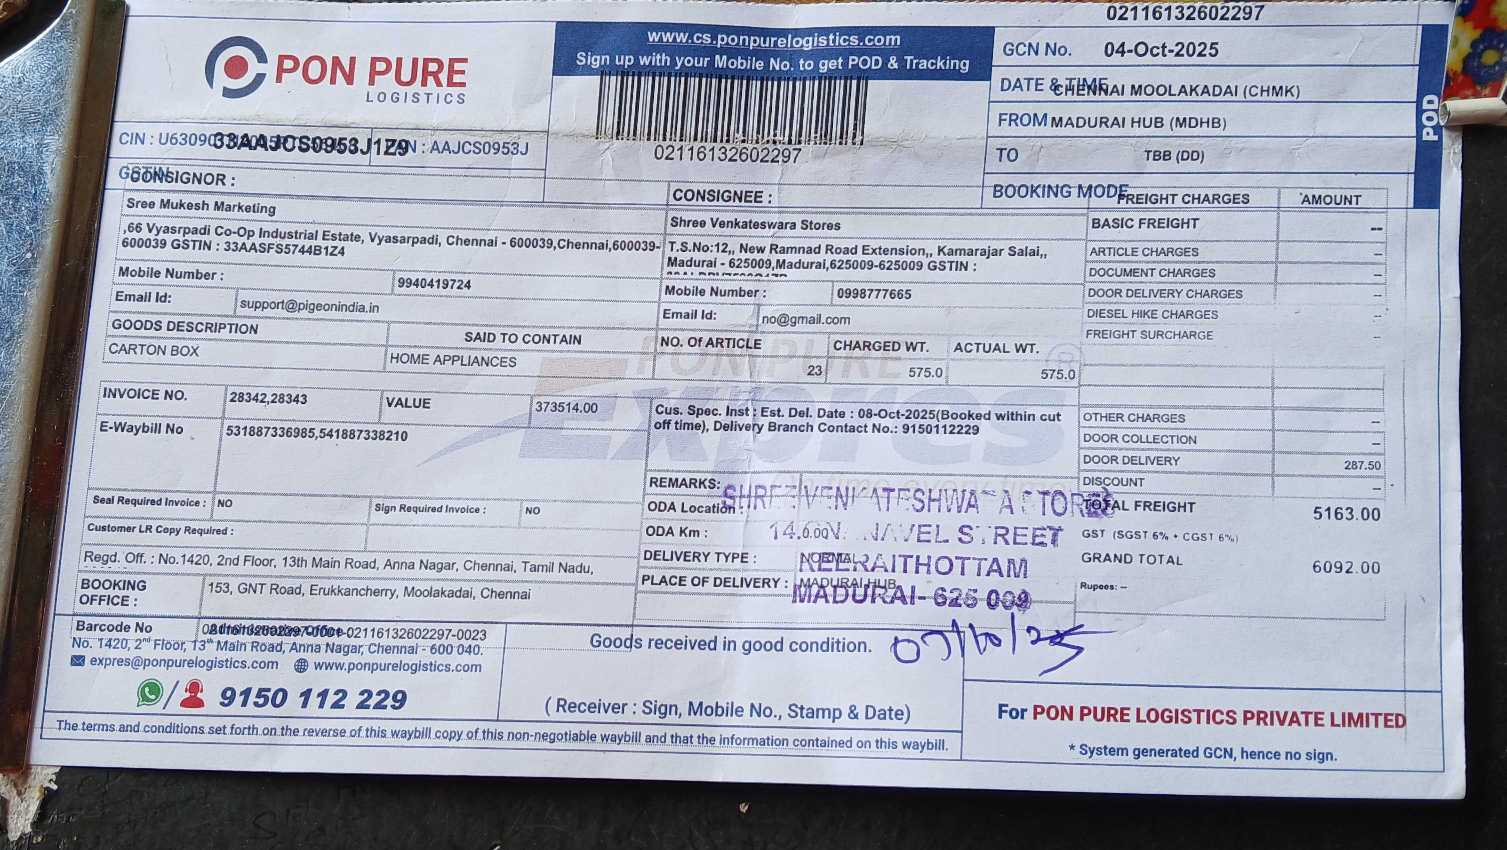 02116132602297
PON PURE
LOGISTICS
www.cs.ponpurelogistics.com
Sign up with your Mobile No. to get POD & Tracking
02116132602297
GCN No. 04-Oct-2025
DATE & TIME CHENNAI MOOLAKADAI (CHMK)
FROM MADURAI HUB (MDHB)
TO TBB (DD)
BOOKING MODE
POD
CIN : U63090 33AAJCS0953J1Z9 : AAJCS0953J
GSTIN
CONSIGNOR :
Sree Mukesh Marketing
,66 Vyasrpadi Co-Op Industrial Estate, Vyasarpadi, Chennai - 600039,Chennai,600039-
600039 GSTIN : 33AASFS5744B1Z4
Mobile Number : 9940419724
Email Id: support@pigeonindia.in
CONSIGNEE :
Shree Venkateswara Stores
T.S.No:12,, New Ramnad Road Extension,, Kamarajar Salai,,
Madurai - 625009,Madurai,625009-625009 GSTIN :
Mobile Number : 0998777665
Email Id: no@gmail.com
FREIGHT CHARGES AMOUNT
BASIC FREIGHT --
ARTICLE CHARGES --
DOCUMENT CHARGES --
DOOR DELIVERY CHARGES --
DIESEL HIKE CHARGES --
FREIGHT SURCHARGE --
OTHER CHARGES --
DOOR COLLECTION --
DOOR DELIVERY 287.50
DISCOUNT --
TOTAL FREIGHT 5163.00
GST (SGST 6% + CGST 6%)
GRAND TOTAL 6092.00
Rupees: --
GOODS DESCRIPTION SAID TO CONTAIN NO. Of ARTICLE CHARGED WT. ACTUAL WT.
CARTON BOX HOME APPLIANCES 23 575.0 575.0
PON PURE
Expres
INVOICE NO. 28342,28343 VALUE 373514.00
E-Waybill No 531887336985,541887338210
Cus. Spec. Inst : Est. Del. Date : 08-Oct-2025(Booked within cut
off time), Delivery Branch Contact No.: 9150112229
Seal Required Invoice : NO Sign Required Invoice : NO
Customer LR Copy Required :
REMARKS:
ODA Location :
ODA Km : 0.00
DELIVERY TYPE : NORMAL
PLACE OF DELIVERY : MADURAI HUB
SHREE VENKATESHWARA STORES
NAVEL STREET
KEERAITHOTTAM
MADURAI- 625 009
Regd. Off. : No.1420, 2nd Floor, 13th Main Road, Anna Nagar, Chennai, Tamil Nadu,
BOOKING OFFICE : 153, GNT Road, Erukkancherry, Moolakadai, Chennai
Barcode No 02116132602297-0001-02116132602297-0023
Administrative Office
No. 1420, 2nd Floor, 13th Main Road, Anna Nagar, Chennai - 600 040.
expres@ponpurelogistics.com www.ponpurelogistics.com
9150 112 229
Goods received in good condition. 07/10/25
( Receiver : Sign, Mobile No., Stamp & Date)
For PON PURE LOGISTICS PRIVATE LIMITED
* System generated GCN, hence no sign.
The terms and conditions set forth on the reverse of this waybill copy of this non-negotiable waybill and that the information contained on this waybill.